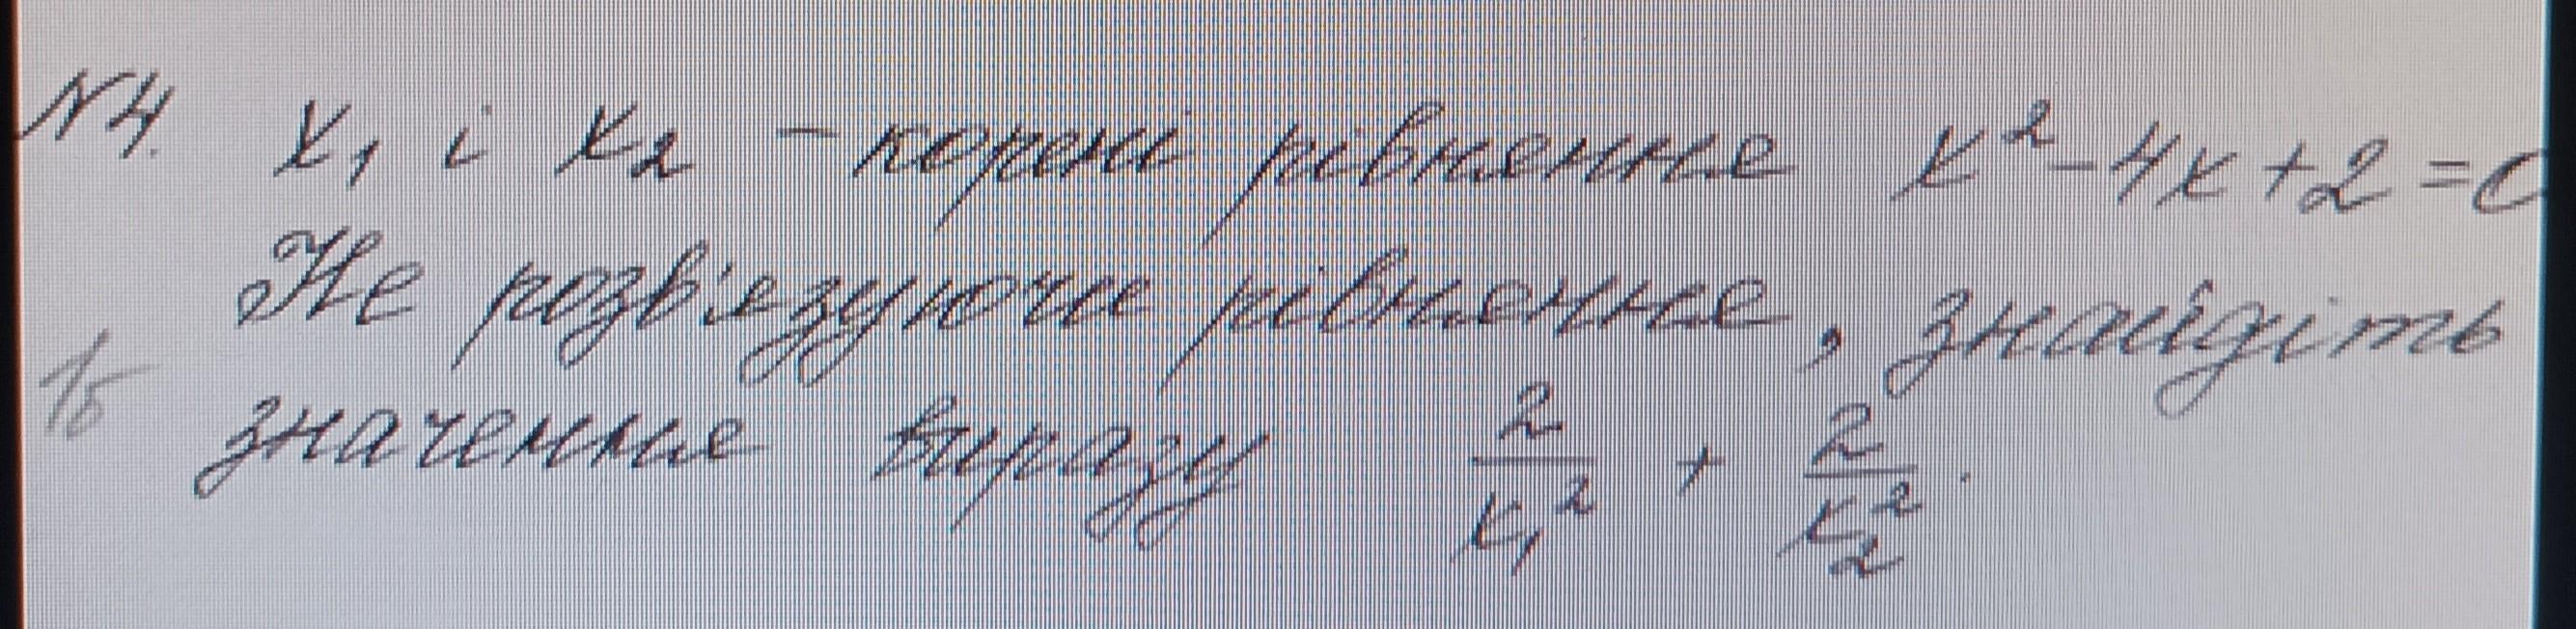 N4. x₁ і x₂ – корені рівняння x² - 4x + 2 = 0
Не розв'язуючи рівняння, знайдіть
1б
значення виразу 2/x₁² + 2/x₂².